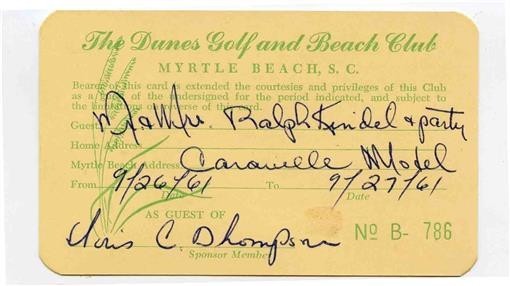 The Dunes Golf and Beach Club
MYRTLE BEACH, S. C.
Bearer of this card is extended the courtesies and privileges of this Club
as a guest of the undersigned for the period indicated, and subject to
the limitations on reverse of this card.
Guest Mr. & Mrs. Ralph Kindel & party
Home Address
Myrtle Beach Address Caravelle Motel
From 9/26/61 To 9/27/61
Date Date
AS GUEST OF
C. Thompson
Sponsor Member
No B- 786